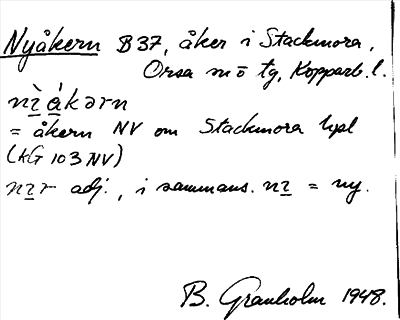 Nyåkern B37, åker i Stackmora,
Orsa sn ö tg, Kopparb. l.
nìákərn
= åkern NV om Stackmora hpl
(kG 103 NV)
nır adj., i sammans. nı = ny.
B. Granholm 1948.